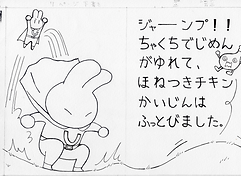 ジャーーンプ！！
ちゃくちでじめん
がゆれて、
ほねつきチキン
かいじんは
ふっとびました。